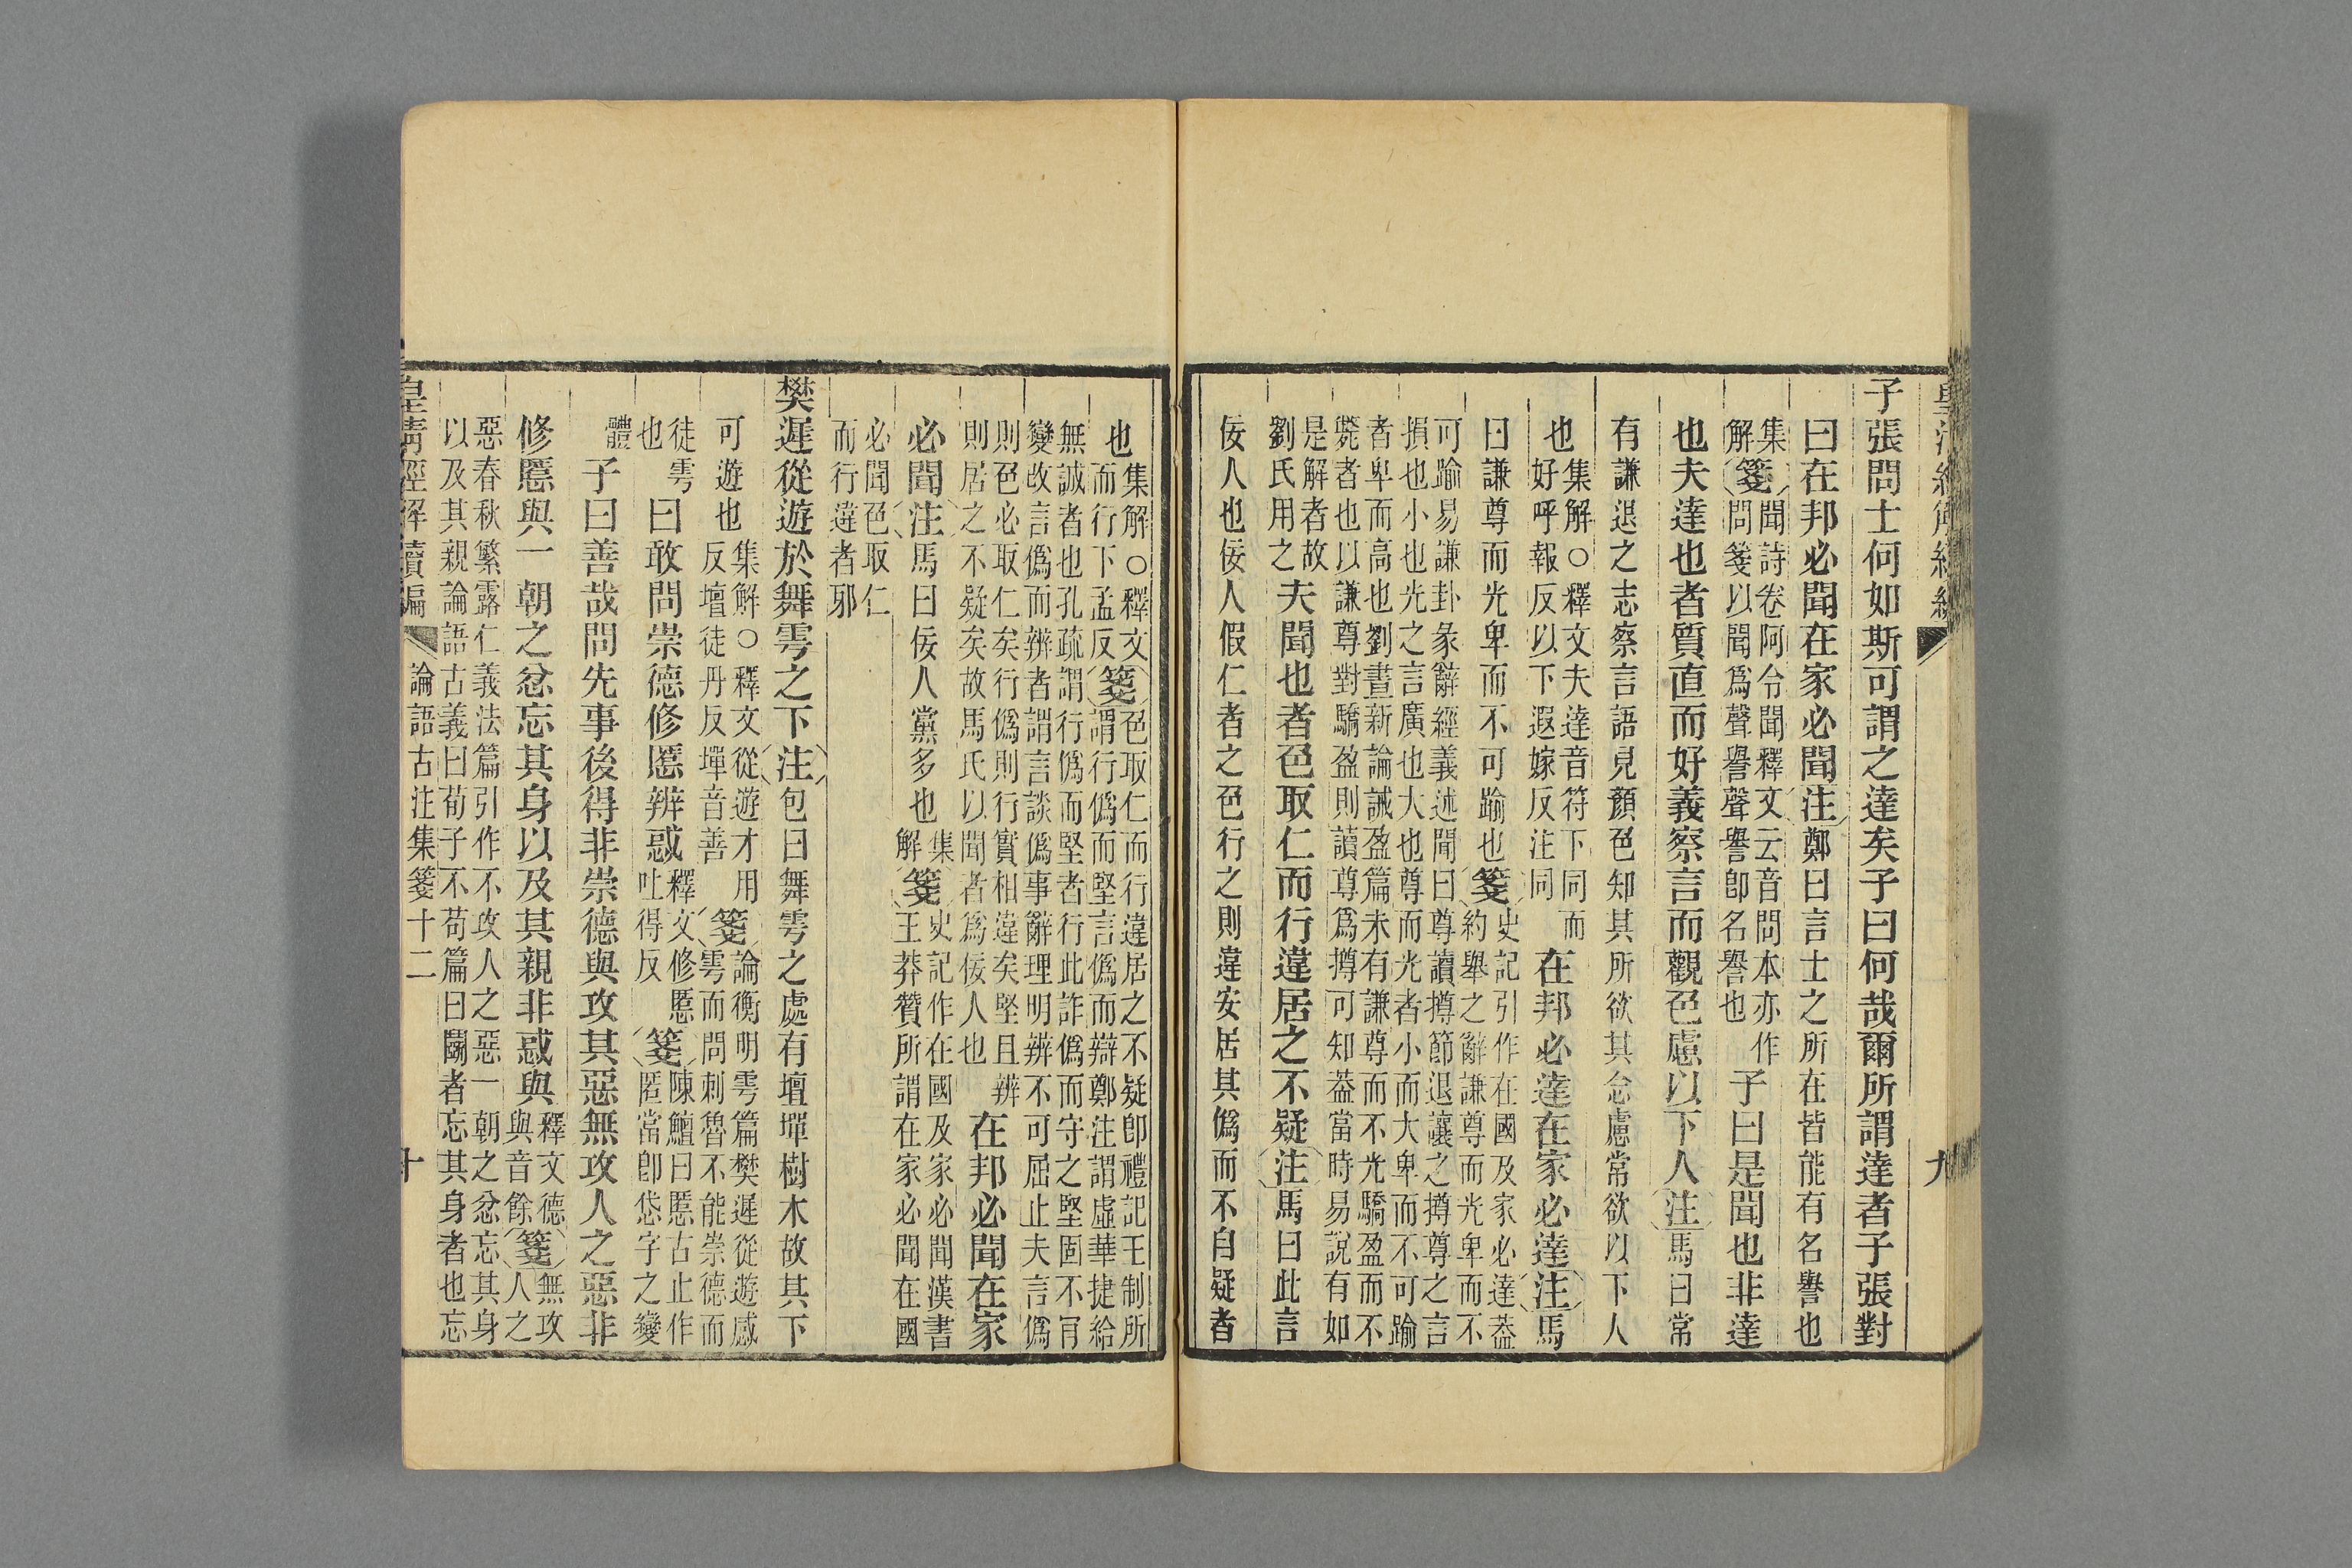 子張問士何如斯可謂之達矣子曰何哉爾所謂達者子張對
曰在邦必聞在家必聞注鄭曰言士之所在皆能有名譽也
集
解箋聞詩卷阿令聞釋文云音問本亦作
問箋以聞爲聲譽聲譽卽名譽也子曰是聞也非達
也夫達也者質直而好義察言而觀色慮以下人注馬曰常
有謙退之志察言語見顏色知其所欲其念慮常欲以下人
也集解○釋文夫達音符下同而
好呼報反以下遐嫁反注同在邦必達在家必達注馬
曰謙尊而光卑而不可踰也箋史記引作在國及家必達葢
約舉之辭謙尊而光卑而不
可踰易謙卦彖辭經義述聞曰尊讀撙節退讓之撙尊之言
損也小也光之言廣也大也尊而光者小而大卑而不可踰
者卑而高也劉晝新論誡盈篇未有謙尊而不光驕盈而不
斃者也以謙尊對驕盈則讀尊爲撙可知葢當時易說有如
是解者故
劉氏用之夫聞也者色取仁而行違居之不疑注馬曰此言
佞人也佞人假仁者之色行之則違安居其僞而不自疑者
也集解○釋文
而行下孟反箋色取仁而行違居之不疑卽禮記王制所
謂行僞而堅言僞而辯鄭注謂虛華捷給
無誠者也孔疏謂行僞而堅者行此詐僞而守之堅固不肯
變改言僞而辨者謂言談僞事辭理明辨不可屈止夫言僞
則色必取仁矣行僞則行實相違矣堅且辨
則居之不疑矣故馬氏以聞者爲佞人也在邦必聞在家
必聞注馬曰佞人黨多也集
解箋史記作在國及家必聞漢書
王莽贊所謂在家必聞在國
必聞色取仁
而行違者邪
樊遲從遊於舞雩之下注包曰舞雩之處有壇墠樹木故其下
可遊也集解○釋文從遊才用
反壇徒丹反墠音善箋論衡明雩篇樊遲從遊感
雩而問刺魯不能崇德而
徒雩
也曰敢問崇德修慝辨惑釋文修慝
吐得反箋陳鱣曰慝古止作
匿當卽岱字之變
體子曰善哉問先事後得非崇德與攻其惡無攻人之惡非
修慝與一朝之忿忘其身以及其親非惑與釋文德
與音餘箋無攻
人之
惡春秋繁露仁義法篇引作不攻人之惡一朝之忿忘其身
以及其親論語古義曰荀子不苟篇曰鬭者忘其身者也忘
皇清經解續編 論語古注集箋十二 十